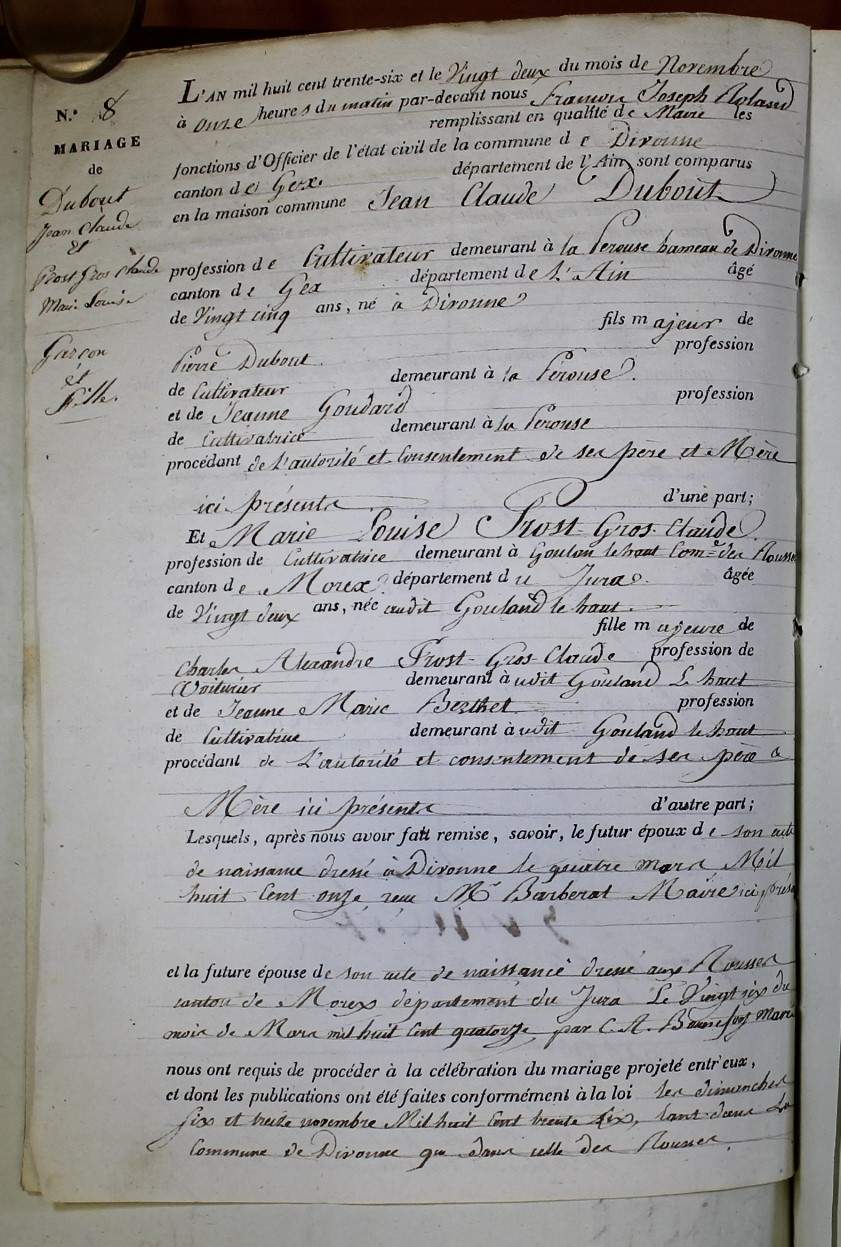 N.° 8
MARIAGE
de
Dubout
Jean Claude
et
Prost Gros Claude
Marie Louise
Garçon
et
Fille.
L'AN mil huit cent trente-six et le Vingt deux du mois de Novembre
à onze heures du matin par-devant nous François Joseph Roland
remplissant en qualité de Maire les
fonctions d'Officier de l'état civil de la commune de Divonne
canton de Gex département de l'Ain, sont comparus
en la maison commune Jean Claude Dubout
profession de Cultivateur demeurant à la Perouse hameau de Divonne
canton de Gex département de L'Ain âgé
de Vingt cinq ans, né à Divonne
fils majeur de
Pierre Dubout profession
de Cultivateur demeurant à la Pérouse.
et de Jeanne Goudard profession
de Cultivatrice demeurant à la Perouse
procédant de L'autorité et Consentement de ses père et Mère
ici présents d'une part;
Et Marie Louise Prost Gros Claude
profession de Cultivatrice demeurant à Gouland le haut Com.ne des Rousses
canton de Morex département du Jura. âgée
de Vingt deux ans, née audit Gouland le haut.
fille majeure de
Charles Alexandre Prost Gros Claude profession de
Voiturier demeurant audit Gouland Le haut
et de Jeanne Marie Berthet profession
de Cultivatrice demeurant audit Gouland le haut
procédant de L'autorité et consentement de ses père &
Mère ici présents d'autre part;
Lesquels, après nous avoir fait remise, savoir, le futur époux de son acte
de naissance dressé à Divonne le quatre mars Mil
huit Cent onze reçu Mr Barberat Maire ici
et la future épouse de son acte de naissance dressé aux Rousses
canton de Morex département du Jura Le Vingt six du
mois de Mars mil huit Cent quatorze, par C. A. Maire
nous ont requis de procéder à la célébration du mariage projeté entr'eux,
et dont les publications ont été faites conformément à la loi les dimanches
six et treize novembre Mil huit Cent trente six, tant dans La
Commune de Divonne que dans celle des Rousses.